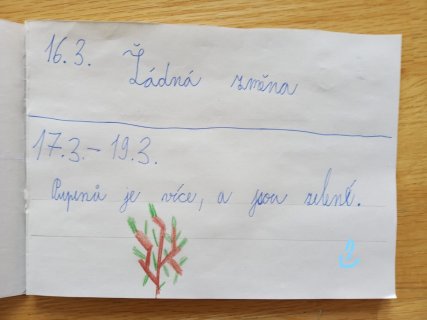 16.3. Žádná změna
17.3. – 19.3.
Pupenů je více, a jsou zelené.